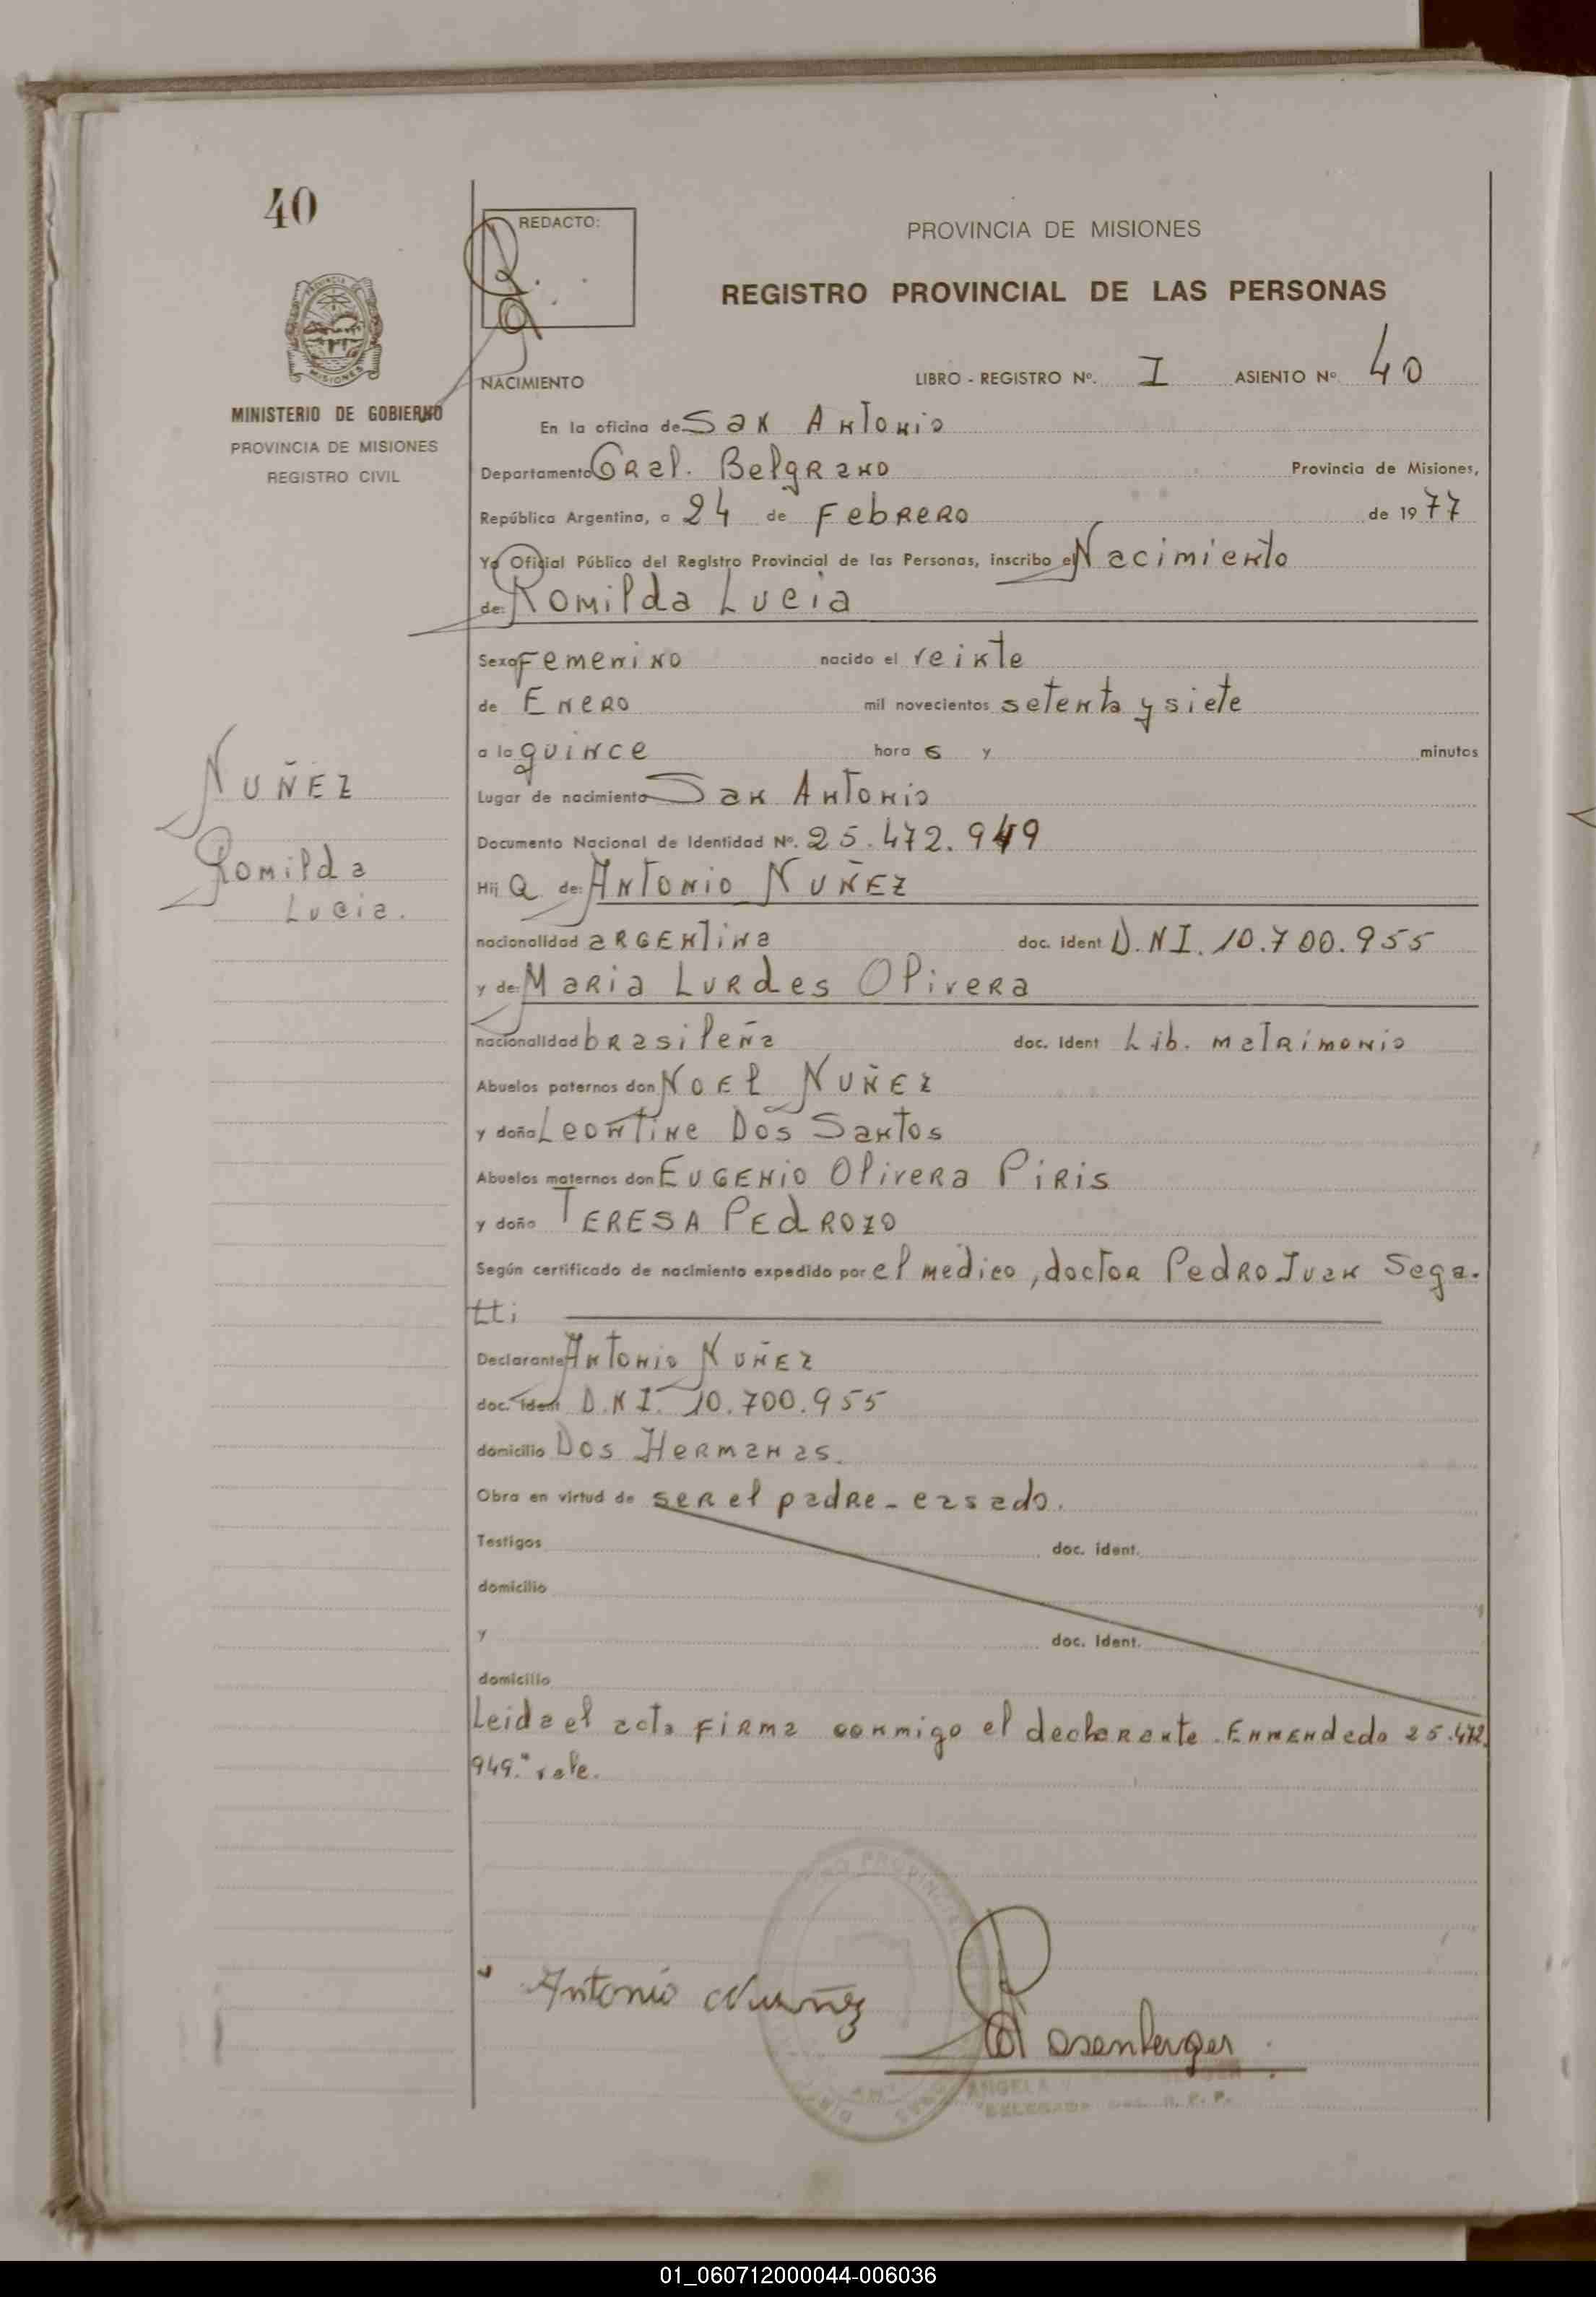 40
REDACTO:
PROVINCIA DE MISIONES
REGISTRO PROVINCIAL DE LAS PERSONAS
PROVINCIA DE
MISIONES
MINISTERIO DE GOBIERNO
PROVINCIA DE MISIONES
REGISTRO CIVIL
NACIMIENTO LIBRO - REGISTRO Nº. I ASIENTO Nº 40
En la oficina de San Antonio
Departamento Gral. Belgrano Provincia de Misiones,
República Argentina, a 24 de Febrero de 1977
Yo Oficial Público del Registro Provincial de las Personas, inscribo el Nacimiento
de: Romilda Lucia
Sexo Femenino nacido el veinte
de Enero mil novecientos setenta y siete
a la quince hora s y minutos
Lugar de nacimiento San Antonio
Documento Nacional de Identidad Nº. 25.472.949
Hij a de: Antonio NUÑEZ
nacionalidad argentina doc. ident D.N.I. 10.700.955
y de: Maria Lurdes Olivera
nacionalidad brasileña doc. ident Lib. matrimonio
Abuelos paternos don Noel NUÑEZ
y doña Leontine Dos Santos
Abuelos maternos don Eugenio Olivera Piris
y doña TERESA PEdROZO
Según certificado de nacimiento expedido por el medico, doctor Pedro Juan Sega-
tti
Declarante Antonio NUÑEZ
doc. ident D.N.I. 10.700.955
domicilio Dos Hermanas.
Obra en virtud de ser el padre - casado.
Testigos doc. ident.
domicilio
y doc. ident.
domicilio
Leida el acta firma conmigo el declarante. Enmendado 25.472.
949." vale.
NUÑEZ
Romilda
Lucia.
Antonio Nuñez
Rosenberger
ANGELA
DELEGADA R. P. P.
01_060712000044-006036